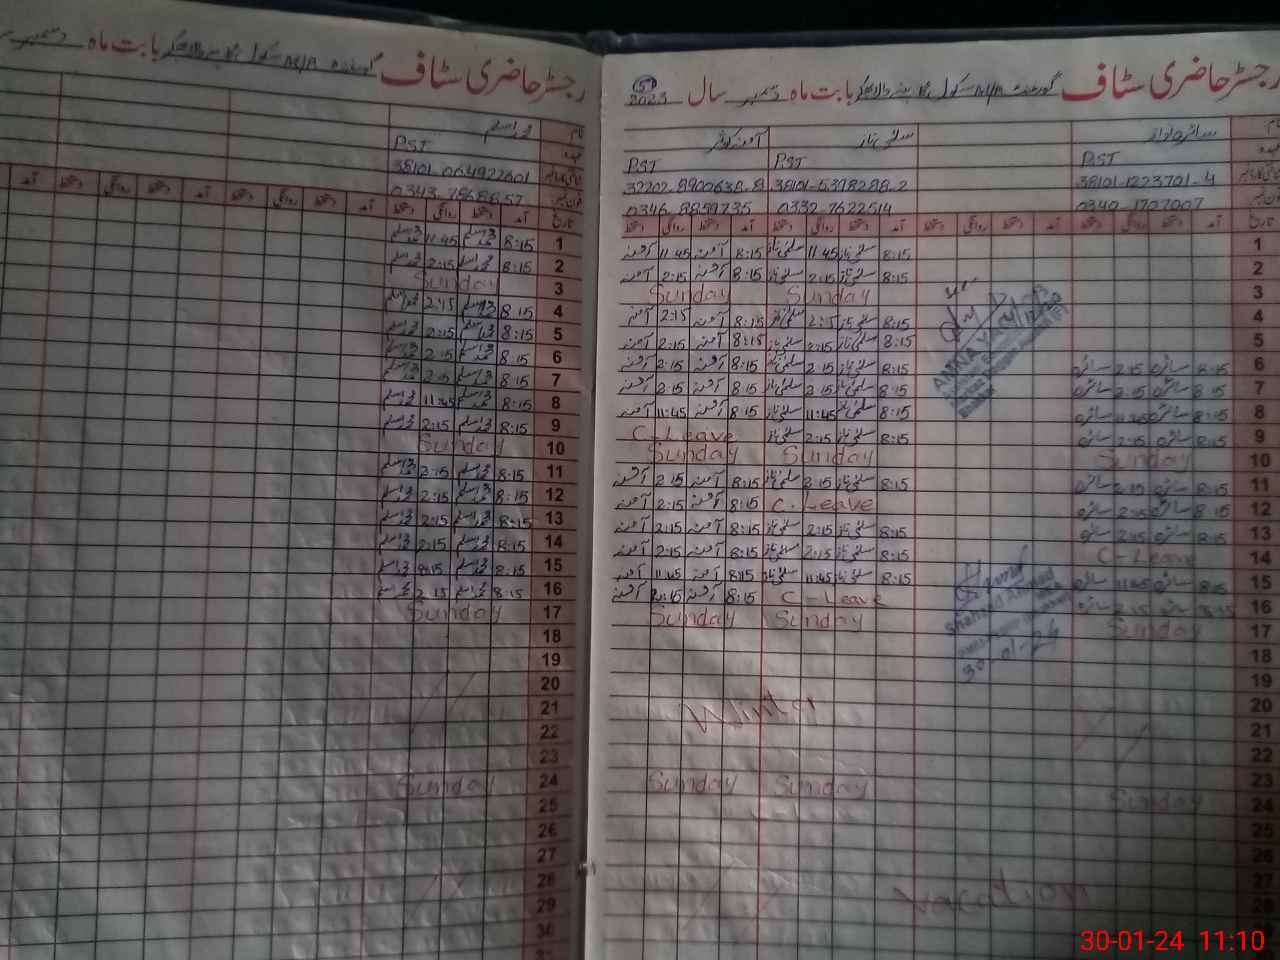 رجسٹر حاضری سٹاف گورنمنٹ M/A سکول بابت ماہ دسمبر سال 2023
5
نام سائرہ نواز سلمیٰ ناز آمنہ کوثر
عہدہ PST PST PST
38101-1223701-4 38101-5398288-2 37202-8900638-8
0340-1707007 0332-7622514 0346-8859735
تاریخ آمد دستخط روانگی دستخط آمد دستخط روانگی دستخط آمد دستخط روانگی دستخط آمد دستخط روانگی دستخط
1 8:15 سلمیٰ ناز 11:45 سلمیٰ ناز 8:15 آمنہ 11:45 آمنہ
2 8:15 سلمیٰ ناز 2:15 سلمیٰ ناز 8:15 آمنہ 2:15 آمنہ
3 Sunday Sunday
4 8:15 سلمیٰ ناز 2:15 سلمیٰ ناز 8:15 آمنہ 2:15 آمنہ
5 8:15 سلمیٰ ناز 2:15 سلمیٰ ناز 8:15 آمنہ 2:15 آمنہ
6 8:15 سائرہ 2:15 سائرہ 8:15 سلمیٰ ناز 2:15 سلمیٰ ناز 8:15 آمنہ 2:15 آمنہ
7 8:15 سائرہ 2:15 سائرہ 8:15 سلمیٰ ناز 2:15 سلمیٰ ناز 8:15 آمنہ 2:15 آمنہ
8 8:15 سائرہ 11:45 سائرہ 8:15 سلمیٰ ناز 11:45 سلمیٰ ناز 8:15 آمنہ 11:45 آمنہ
9 8:15 سائرہ 2:15 سائرہ 8:15 سلمیٰ ناز 2:15 سلمیٰ ناز C-Leave
10 Sunday Sunday Sunday
11 8:15 سائرہ 2:15 سائرہ 8:15 سلمیٰ ناز 2:15 سلمیٰ ناز 8:15 آمنہ 2:15 آمنہ
12 8:15 سائرہ 2:15 سائرہ C. Leave 8:15 آمنہ 2:15 آمنہ
13 8:15 سائرہ 2:15 سائرہ 8:15 سلمیٰ ناز 2:15 سلمیٰ ناز 8:15 آمنہ 2:15 آمنہ
14 C-Leave 8:15 سلمیٰ ناز 2:15 سلمیٰ ناز 8:15 آمنہ 2:15 آمنہ
15 8:15 سائرہ 11:45 سائرہ 8:15 سلمیٰ ناز 11:45 سلمیٰ ناز 8:15 آمنہ 11:45 آمنہ
16 8:15 سائرہ 2:15 سائرہ C-Leave 8:15 آمنہ 2:15 آمنہ
17 Sunday Sunday Sunday
18
19
20
21 Winter
22
23
24 Sunday Sunday Sunday
25
26
27
28 Vacation
30-01-24
رجسٹر حاضری سٹاف گورنمنٹ M/A سکول بابت ماہ دسمبر
محمد اسلم
PST
38101-064922601
0343-7868857
تاریخ آمد دستخط روانگی دستخط آمد دستخط روانگی دستخط آمد دستخط روانگی دستخط آمد
1 8:15 محمد اسلم 11:45 محمد اسلم
2 8:15 محمد اسلم 2:15 محمد اسلم
3 Sunday
4 8:15 محمد اسلم 2:15 محمد اسلم
5 8:15 محمد اسلم 2:15 محمد اسلم
6 8:15 محمد اسلم 2:15 محمد اسلم
7 8:15 محمد اسلم 2:15 محمد اسلم
8 8:15 محمد اسلم 11:45 محمد اسلم
9 8:15 محمد اسلم 2:15 محمد اسلم
10 Sunday
11 8:15 محمد اسلم 2:15 محمد اسلم
12 8:15 محمد اسلم 2:15 محمد اسلم
13 8:15 محمد اسلم 2:15 محمد اسلم
14 8:15 محمد اسلم 2:15 محمد اسلم
15 8:15 محمد اسلم محمد اسلم
16 8:15 محمد اسلم 2:15 محمد اسلم
17 Sunday
18
19
20
21
22
23
24 Sunday
25
26
27
28
29
30
30-01-24 11:10